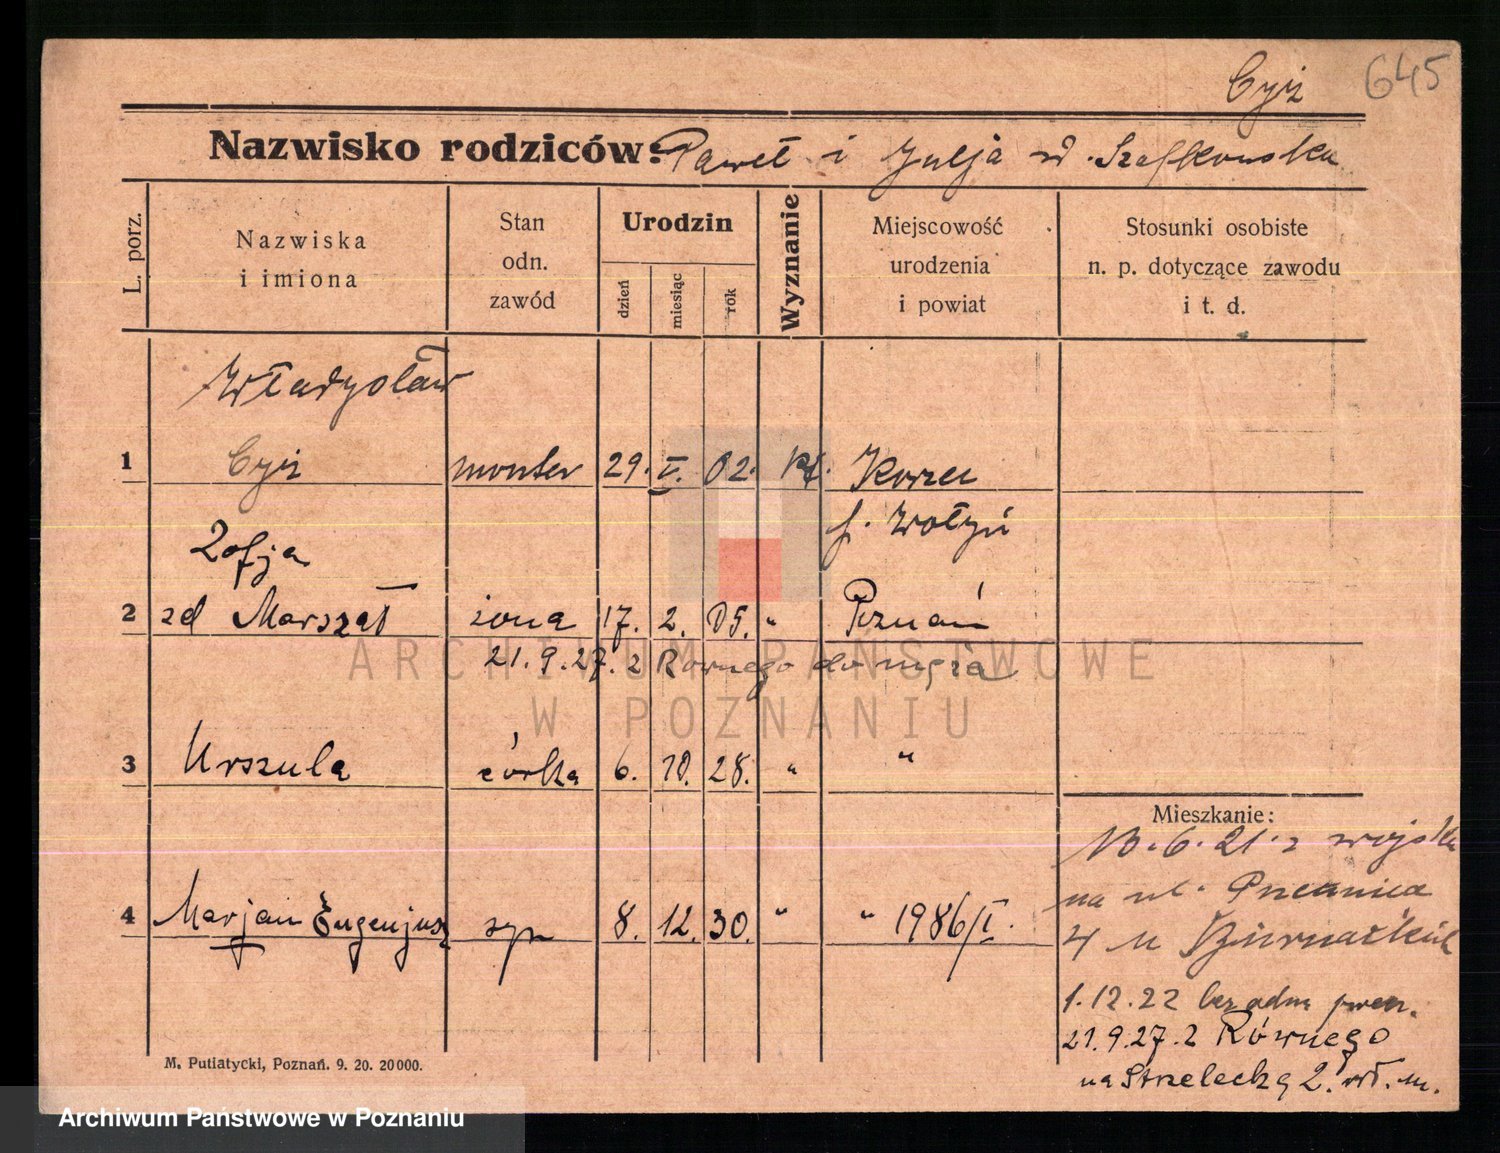 Cyż 645
Nazwisko rodziców: Paweł i Julja
L. porz.
Nazwiska
i imiona
Stan
odn.
zawód
Urodzin
dzień
miesiąc
rok
Wyznanie
Miejscowość
urodzenia
i powiat
Stosunki osobiste
n. p. dotyczące zawodu
i t. d.
Władysław
1 Cyż monter 29. V. 02. kt. Korzec
p. Wołyń
Zofja
2 zd Marszał żona 17. 2. 05. " Poznań
21. 9. 27. z Równego do męża
3 Urszula córka 6. 10. 28. " "
4 Marjan Eugenjusz syn 8. 12. 30. " " 1986/I.
Mieszkanie:
13. 6. 21. z wojska
na ul.
4 u
1. 12. 22 bez
21. 9. 27. z Równego
na Strzelecką 2.
M. Putiatycki, Poznań. 9. 20. 20000.
ARCHIWUM PAŃSTWOWE
W POZNANIU
Archiwum Państwowe w Poznaniu